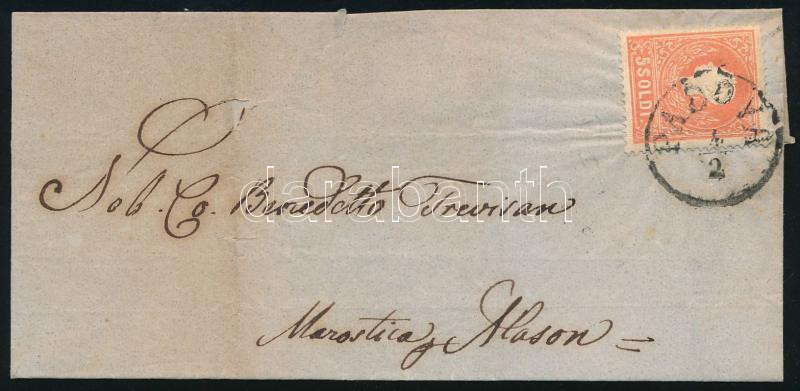 5 SOLDI
PADOVA
4
2
Nob. Co. Benedetto Trevisan
darabanth
Marostica